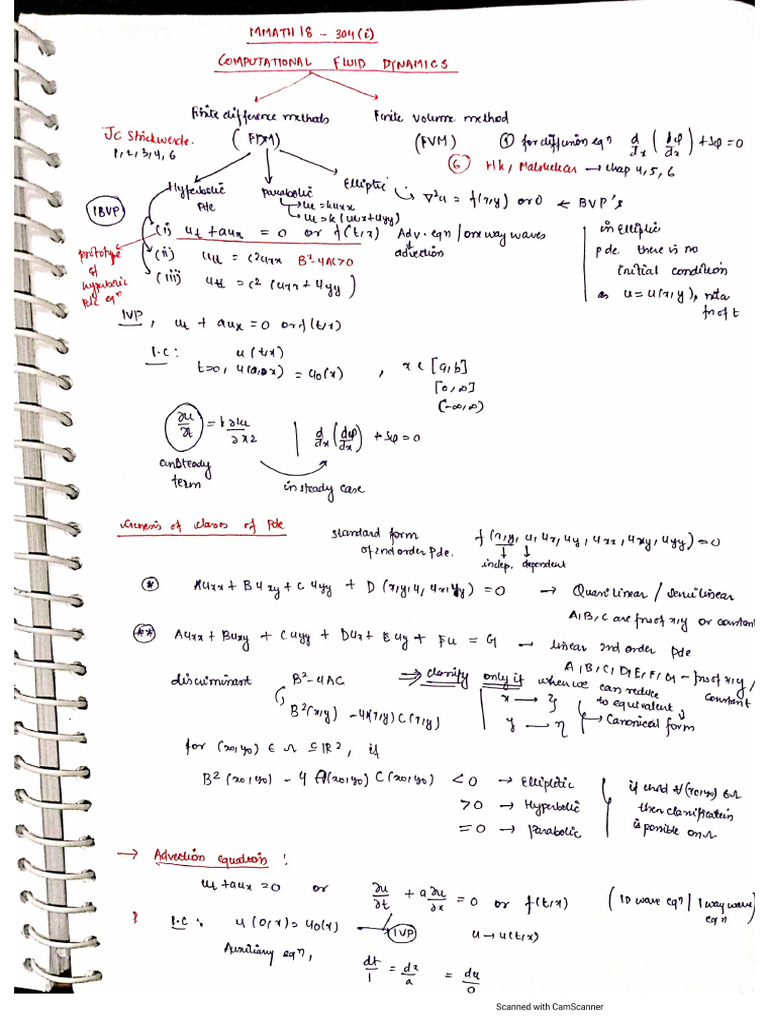 MMATH18 - 304(i)
COMPUTATIONAL FLUID DYNAMICS
Finite difference methods
Finite volume method
JC Strickwerde.
1, 2, 3, 4, 6
(FDM)
(FVM)
① for diffusion eqⁿ d/dx (dφ/dx) + Sφ = 0
⑥ HK, Malalsekar → chap 4, 5, 6
Hyperbolic Pde
Parabolic
→ ut = kuxx
→ ut = k(uxx + uyy)
Elliptic
∇²u = f(x,y) or 0 ← BVP's
IBVP
(i) ut + aux = 0 or f(t,x) Adv. eqⁿ / one way waves
advection
(ii) utt = c²uxx B²-4AC>0
(iii) utt = c² (uxx + uyy)
prototype of hyperbolic pde eqⁿ
in elliptic
pde there is no
initial condition
as u = u(x,y), not a
fn of t
IVP, ut + aux = 0 or f(t,x)
I.C: u(t,x)
t=0, u(0,x) = u0(x) , x ∈ [a,b]
[0,∞]
(-∞,∞)
∂u/∂t = k ∂²u/∂x² | d/dx (dφ/dx) + Sφ = 0
unsteady
term
in steady case
Genesis of classes of Pde
standard form
of 2nd order Pde.
f(x,y, u, ux, uy, uxx, uxy, uyy) = 0
indep. dependent
* Auxx + Buxy + Cuyy + D(x,y,u,ux,uy) = 0 → Quasilinear / Semilinear
A,B,C are fn of x,y or constant
** Auxx + Buxy + Cuyy + Dux + Euy + Fu = G → linear 2nd order Pde
A,B,C,D,E,F,G - fn of x,y,
constant
discriminant B²-4AC
B²(x,y) - 4A(x,y)C(x,y)
⇒ classify only if when we can reduce
x → ξ
y → η
to equivalent
Canonical form
for (x0,y0) ∈ Ω ⊆ ℝ², if
B²(x0,y0) - 4A(x0,y0)C(x0,y0) < 0 → Elliptic
> 0 → Hyperbolic
= 0 → Parabolic
if cond ∀ (x0,y0) ∈ Ω
then classification
is possible on Ω
→ Advection equation :
ut + aux = 0 or ∂u/∂t + a ∂u/∂x = 0 or f(t,x) (1D wave eqⁿ / 1 way wave eqⁿ)
I.C: u(0,x) = u0(x) → IVP u → u(t,x)
Auxiliary eqⁿ, dt/1 = dx/a = du/0
Scanned with CamScanner